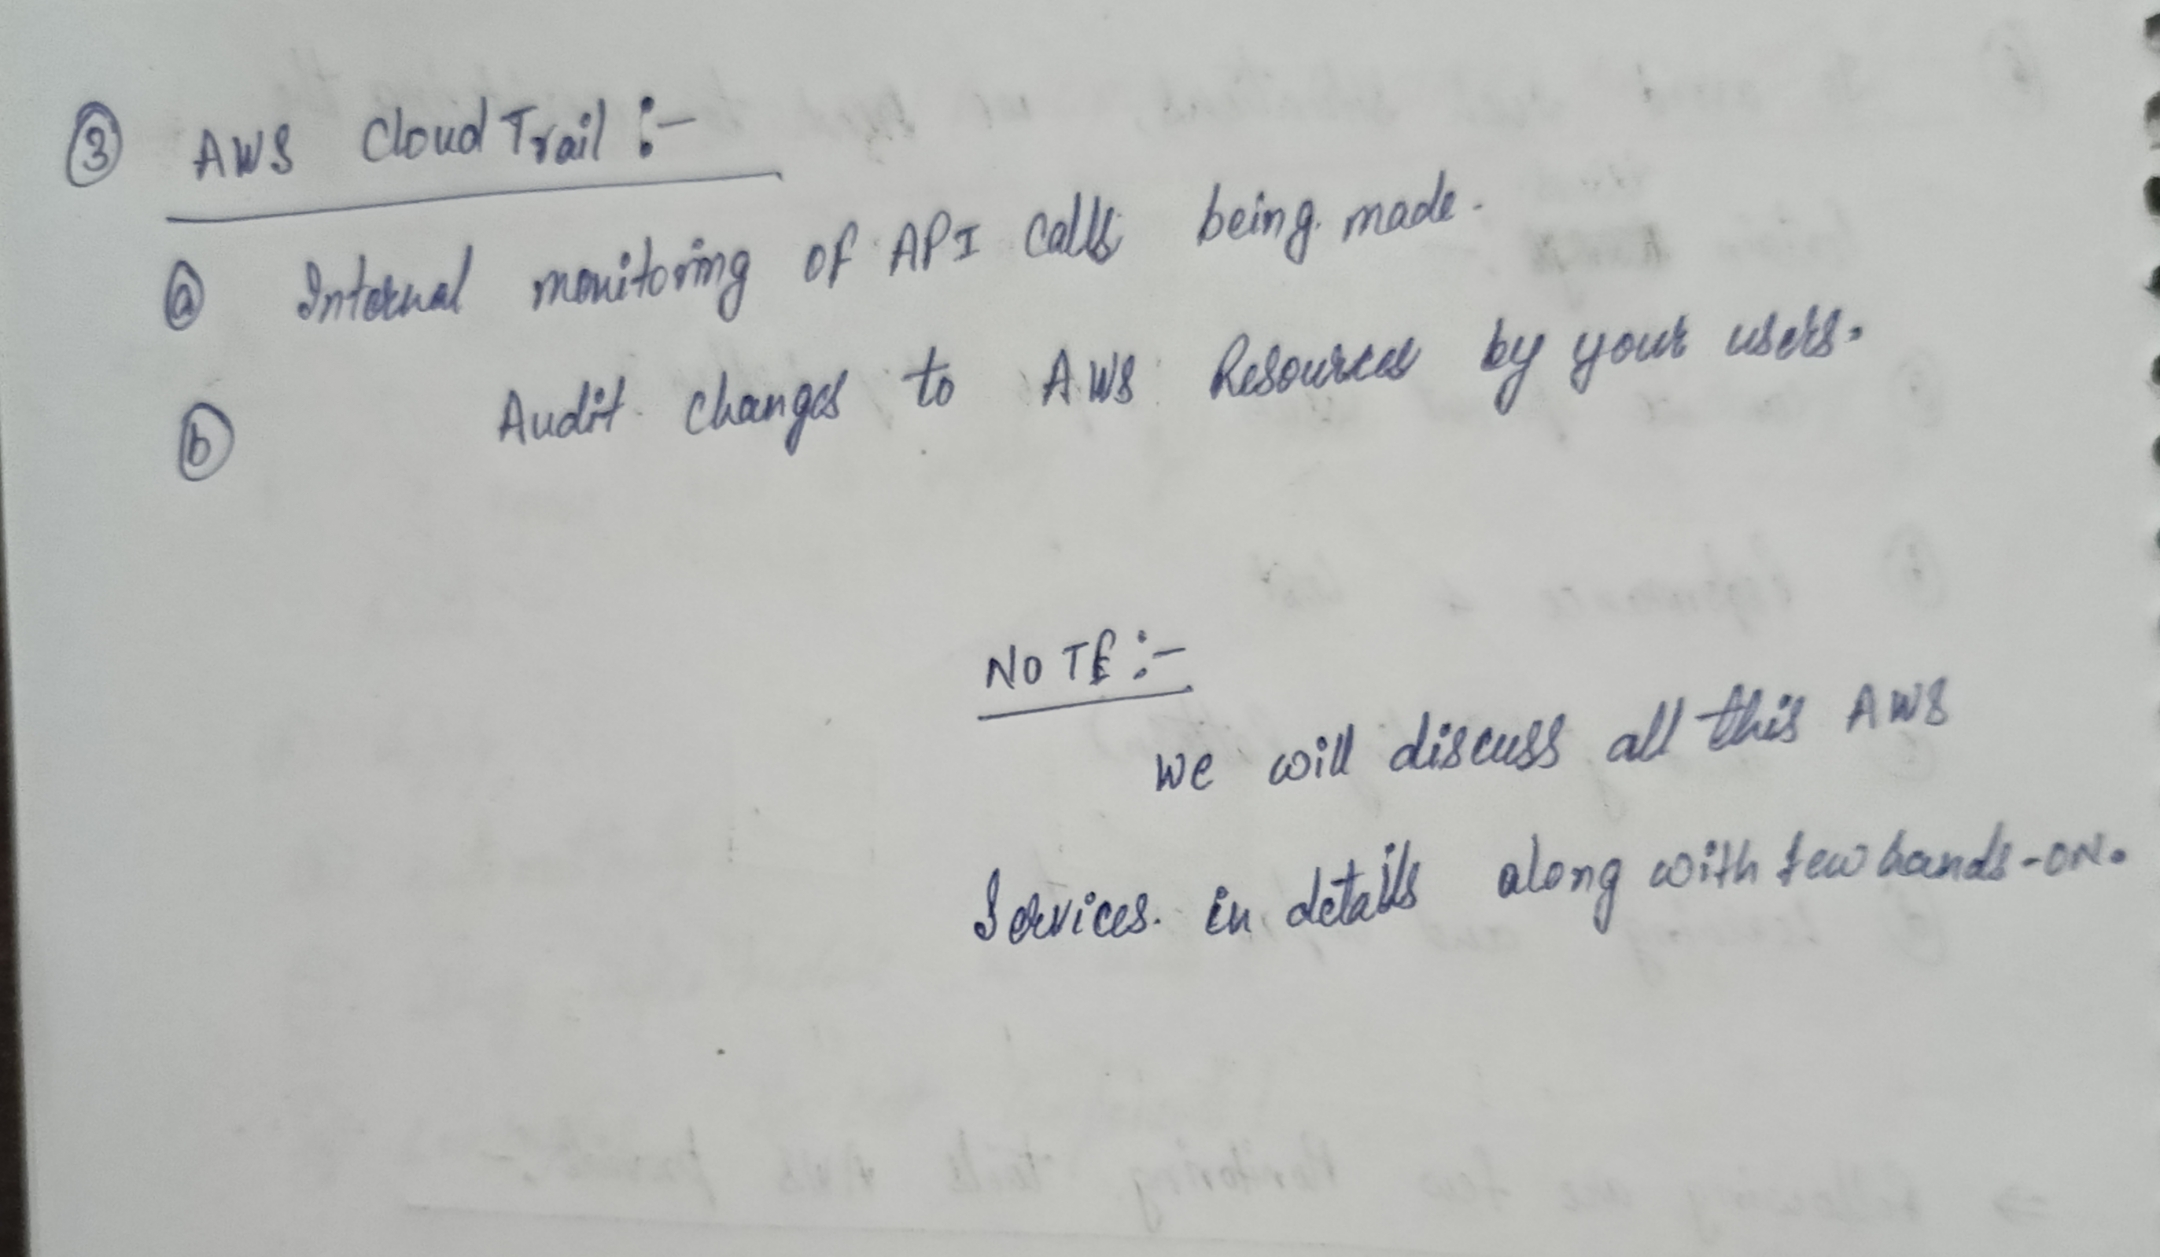 ③ AWS CloudTrail :-
ⓐ Internal monitoring of API calls being made.
ⓑ Audit changes to AWS Resources by your users.
NOTE :-
We will discuss all this AWS
Services. in details along with few hands-on.